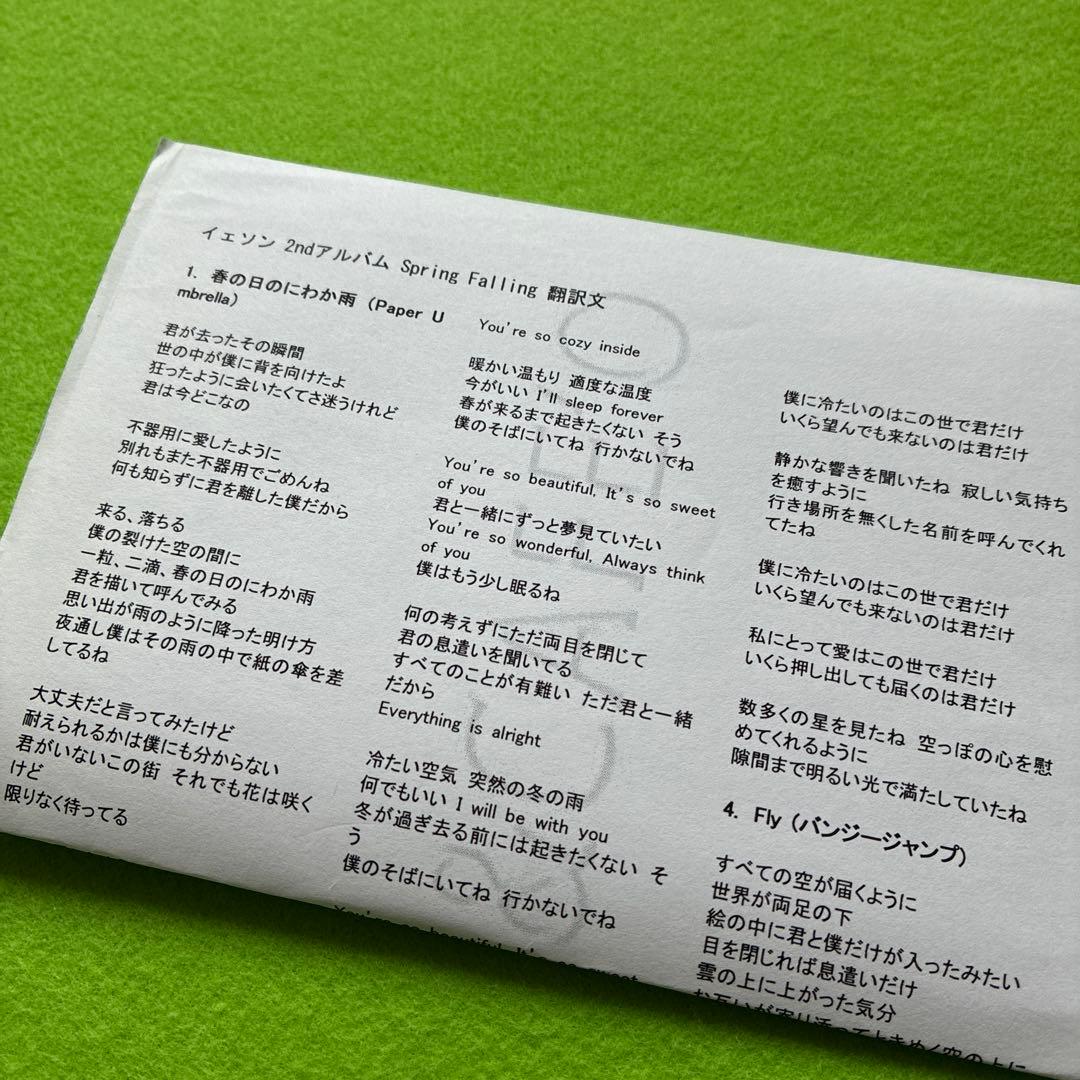 イェソン 2ndアルバム Spring Falling 翻訳文
1. 春の日のにわか雨 (Paper U
mbrella)
君が去ったその瞬間
世の中が僕に背を向けたよ
狂ったように会いたくてさ迷うけれど
君は今どこなの
不器用に愛したように
別れもまた不器用でごめんね
何も知らずに君を離した僕だから
来る、落ちる
僕の裂けた空の間に
一粒、二滴、春の日のにわか雨
君を描いて呼んでみる
思い出が雨のように降った明け方
夜通し僕はその雨の中で紙の傘を差
してるね
大丈夫だと言ってみたけど
耐えられるかは僕にも分からない
君がいないこの街 それでも花は咲く
けど
限りなく待ってる
You're so cozy inside
暖かい温もり 適度な温度
今がいい I'll sleep forever
春が来るまで起きたくない そう
僕のそばにいてね 行かないでね
You're so beautiful, It's so sweet
of you
君と一緒にずっと夢見ていたい
You're so wonderful, Always think
of you
僕はもう少し眠るね
何の考えずにただ両目を閉じて
君の息遣いを聞いてる
すべてのことが有難い ただ君と一緒
だから
Everything is alright
冷たい空気 突然の冬の雨
何でもいい I will be with you
冬が過ぎ去る前には起きたくない そ
う
僕のそばにいてね 行かないでね
You're so beautiful, It's so sweet
僕に冷たいのはこの世で君だけ
いくら望んでも来ないのは君だけ
静かな響きを聞いたね 寂しい気持ち
を癒すように
行き場所を無くした名前を呼んでくれ
てたね
僕に冷たいのはこの世で君だけ
いくら望んでも来ないのは君だけ
私にとって愛はこの世で君だけ
いくら押し出しても届くのは君だけ
数多くの星を見たね 空っぽの心を慰
めてくれるように
隙間まで明るい光で満たしていたね
4. Fly (バンジージャンプ)
すべての空が届くように
世界が両足の下
絵の中に君と僕だけが入ったみたい
目を閉じれば息遣いだけ
雲の上に上がった気分
お互いが寄り添ってときめく空の上に